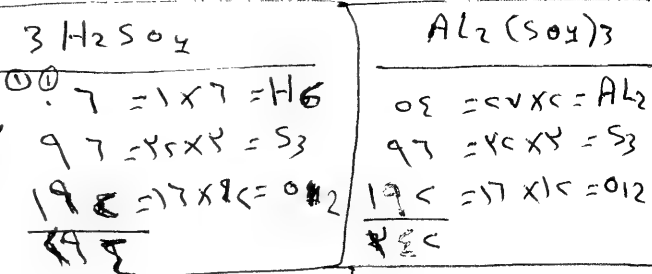 3 H2SO4
① ①
٠٦ = ١ × ٦ = H6
٩٦ = ٣٢ × ٣ = S3
١٩٢ = ١٦ × ١٢ = O12
٢٩٤
AL2(SO4)3
٥٤ = ٢٧ × ٢ = AL2
٩٦ = ٣٢ × ٣ = S3
١٩٢ = ١٦ × ١٢ = O12
٣٤٢